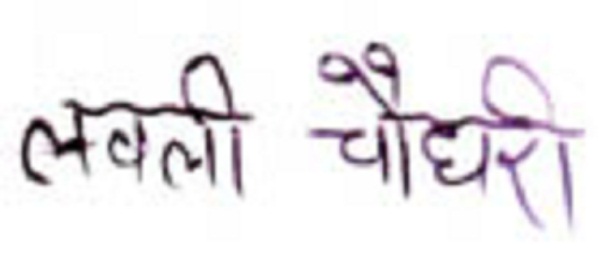 लवली चौधरी